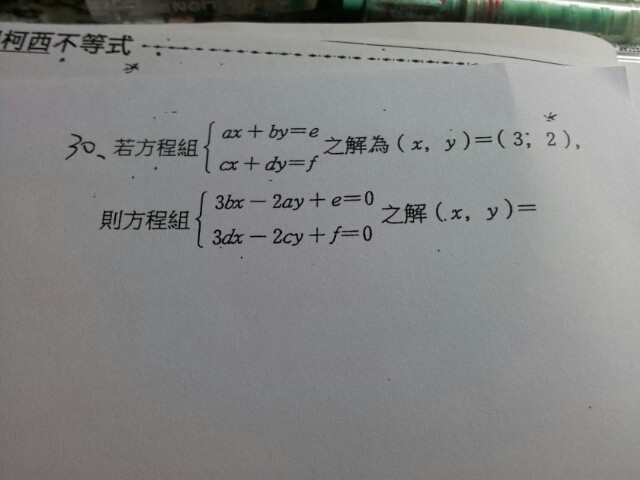 柯西不等式
30、若方程組{ax+by=e cx+dy=f 之解為(x, y)=(3, 2),
則方程組{3bx-2ay+e=0 3dx-2cy+f=0 之解(x, y)=